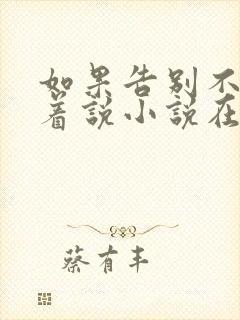 如果告别不
着说小说在
蔡有丰